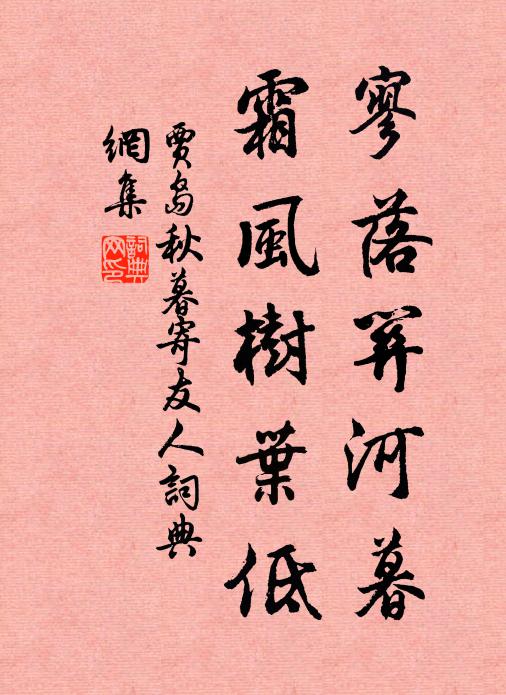 寥落關河暮
霜風樹葉低
賈島秋暮寄友人詞典
網集
詞典
网印